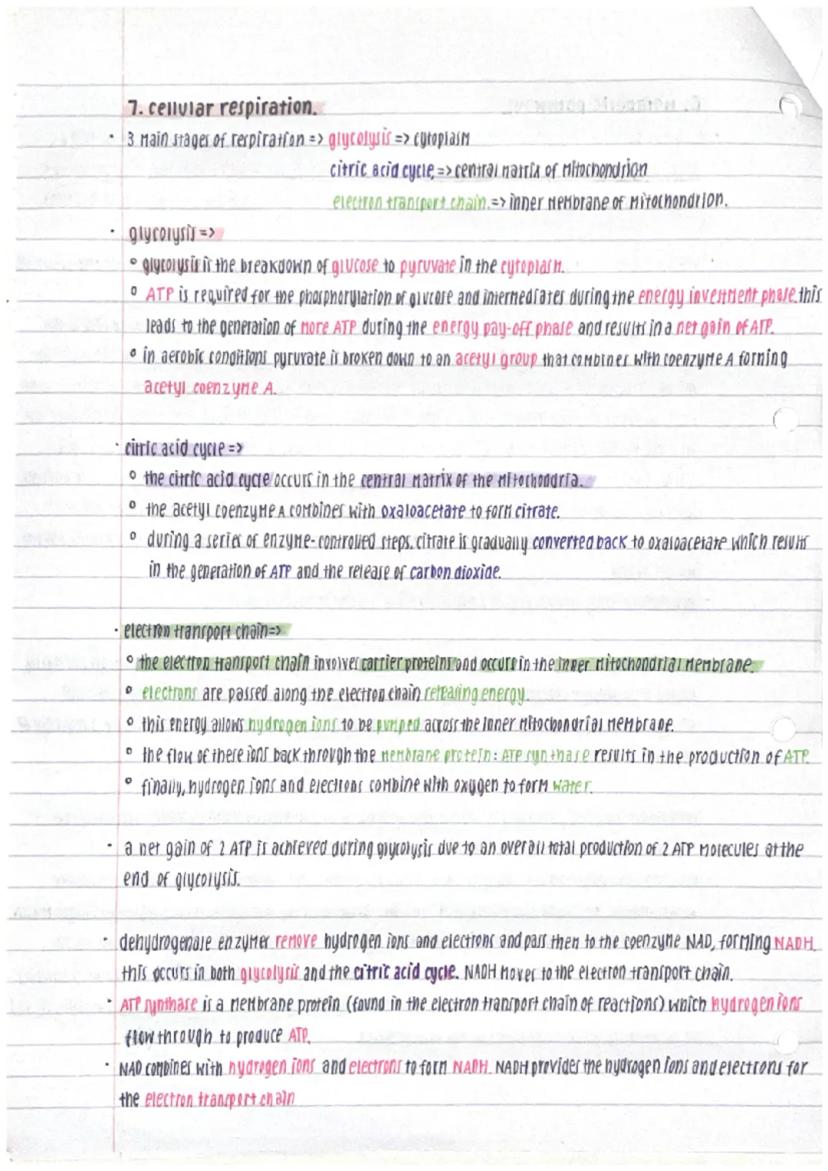 7. cellular respiration.
· 3 main stages of respiration => glycolysis => cytoplasm
citric acid cycle => central matrix of mitochondrion
electron transport chain => inner membrane of mitochondrion.
· glycolysis =>
° glycolysis is the breakdown of glucose to pyruvate in the cytoplasm.
° ATP is required for the phosphorylation of glucose and intermediates during the energy investment phase. this
leads to the generation of more ATP during the energy pay-off phase and results in a net gain of ATP.
° in aerobic conditions pyruvate is broken down to an acetyl group that combines with coenzyme A forming
acetyl coenzyme A.
· citric acid cycle =>
° the citric acid cycle occurs in the central matrix of the mitochondria.
° the acetyl coenzyme A combines with oxaloacetate to form citrate.
° during a series of enzyme-controlled steps, citrate is gradually converted back to oxaloacetate which results
in the generation of ATP and the release of carbon dioxide.
· electron transport chain =>
° the electron transport chain involves carrier proteins and occurs in the inner mitochondrial membrane.
° electrons are passed along the electron chain releasing energy.
° this energy allows hydrogen ions to be pumped across the inner mitochondrial membrane.
° the flow of these ions back through the membrane protein: ATP synthase results in the production of ATP.
° finally, hydrogen ions and electrons combine with oxygen to form water.
· a net gain of 2 ATP is achieved during glycolysis due to an overall total production of 2 ATP molecules at the
end of glycolysis.
· dehydrogenase enzymes remove hydrogen ions and electrons and pass then to the coenzyme NAD, forming NADH.
this occurs in both glycolysis and the citric acid cycle. NADH moves to the electron transport chain.
· ATP synthase is a membrane protein (found in the electron transport chain of reactions) which hydrogen ions
flow through to produce ATP.
· NAD combines with hydrogen ions and electrons to form NADH. NADH provides the hydrogen ions and electrons for
the electron transport chain